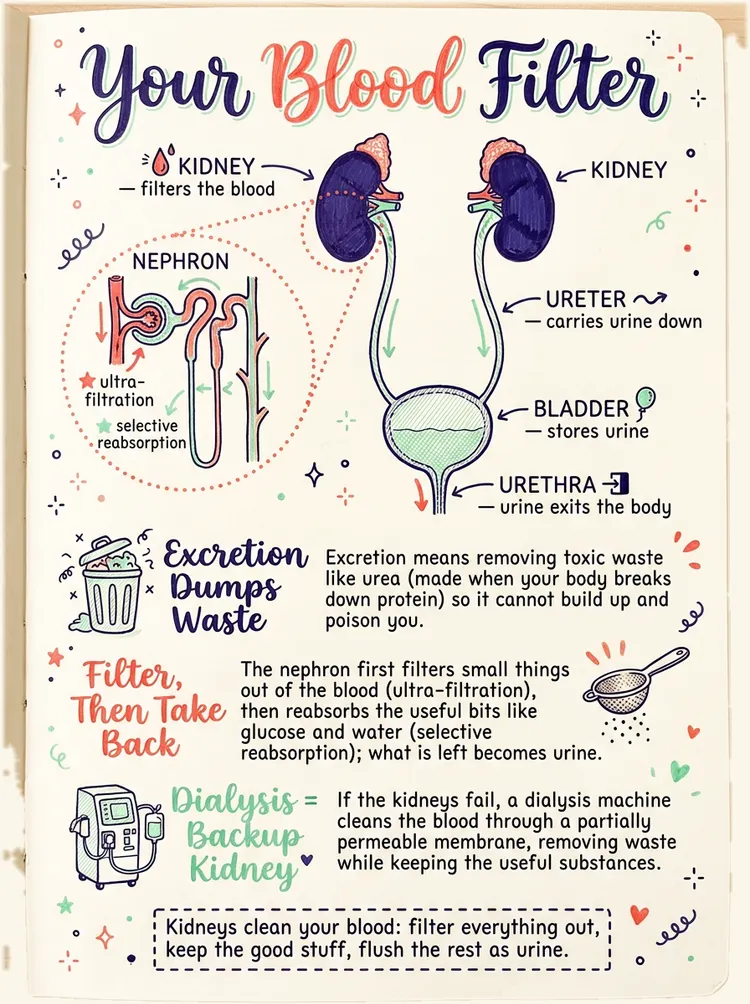 Your Blood Filter
KIDNEY
— filters the blood
KIDNEY
NEPHRON
ultra-
filtration
selective
reabsorption
URETER
— carries urine down
BLADDER
— stores urine
URETHRA
— urine exits the body
Excretion
Dumps
Waste
Excretion means removing toxic waste
like urea (made when your body breaks
down protein) so it cannot build up and
poison you.
Filter,
Then Take
Back
The nephron first filters small things
out of the blood (ultra-filtration),
then reabsorbs the useful bits like
glucose and water (selective
reabsorption); what is left becomes urine.
Dialysis =
Backup
Kidney
If the kidneys fail, a dialysis machine
cleans the blood through a partially
permeable membrane, removing waste
while keeping the useful substances.
Kidneys clean your blood: filter everything out,
keep the good stuff, flush the rest as urine.